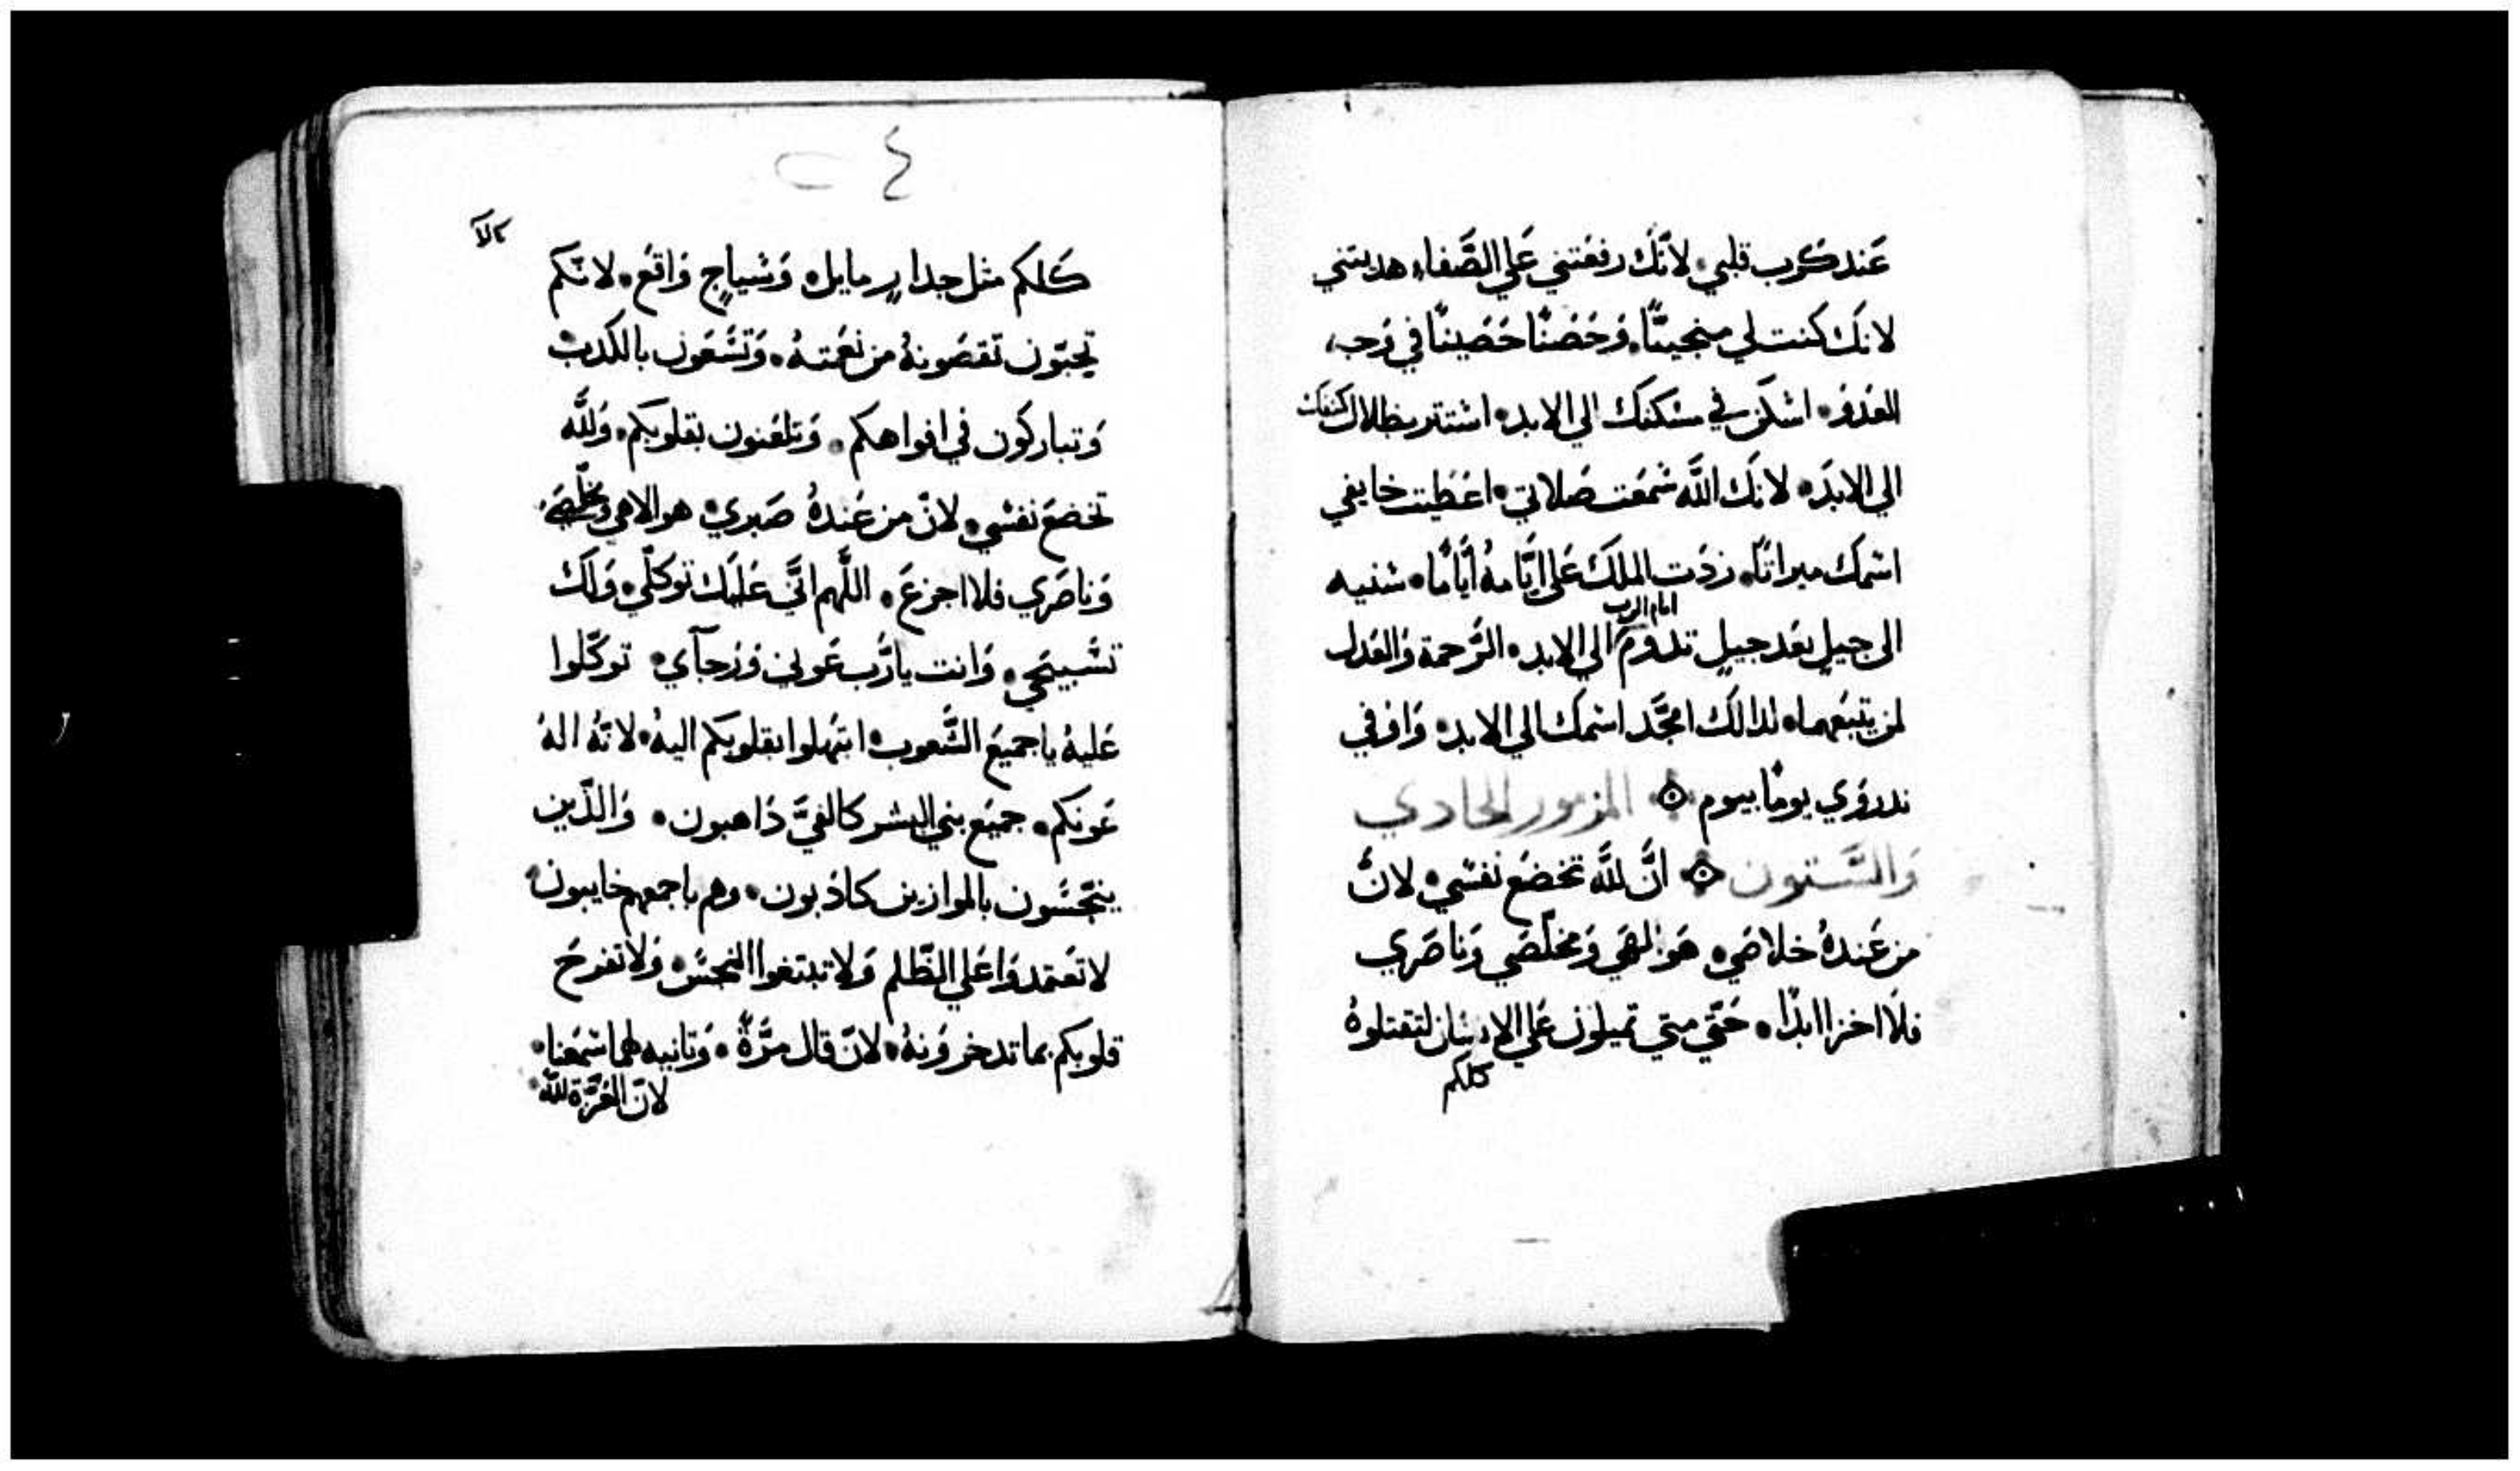 عَند كَرب قلبي. لانَّك رفعَتني عَلي الصَّفاء هديتني
لانَك كنت لي منجيًّا. وَحَصنًا حَصينًا في وَجه
العَدوَ. اسَكن في مسَكنك الي الابد. استتر بظلال كنفك
الي الابدَ. لانَك اللَّه سَمعَت صَلاتي. اعَطيت خايفي
اسَمك ميراثًا. زدَت الملَك عَلي ايَّامهُ ايَّامًا. سَنيه
الى جيلٍ بعَد جيلٍ تدوَمَ الي الابد. الرَّحمة وَالعَدل
امام الرب
لمن يتبعَهما. لذالَك امجَّد اسَمك الي الابد. وَاوَفي
ندروَي يومًا بيوم ۞ المزمور الحادي
وَالسَّتون ۞ انَّ للَّه تخضعَ نفسَي. لانَّ
من عَندهُ خلاصَي. هَو الهَي وَمخلّصَي وَناصَري
فلَا اخزا ابدًا. حَتّي متي تميلون عَلي الانسَان لتقتلوهُ
كلكم
٤
كلا
كَلكم مثل جدارٍ مايل. وَسَياجٍ وَاقعَ. لانّكم
تحبّون تقصَونهُ من نعَمتهُ. وَتسَّعَون بالكذب
وَتباركَون في افواهكم. وَتلعَنون بقلوبكم. وَللَّه
تخضعَ نفسَي. لانّ من عَندهُ صَبري. هو الاهي وَمخلّصَي
وَناصَري فلا اجزعَ. اللَّهم انّي عَليَك توكلّي. وَلَك
تسَبيحَي. وَانت يا رَّب عَوني وَرَجآي. توكّلوا
عَليهُ يا جميعَ الشَّعوب. ابتهلوا بقلوبكم اليهُ. لانّهُ الهُ
عَونكم. جميعَ بني البشر كالفيَّ ذَاهبون. وَالذّين
ينجّسَون بالموازين كاذَبون. وهم باجمعهم خايبون.
لا تعَتمدوَا عَلي الظّلم وَلا تبتغوا النجسَ. وَلا تفرحَ
قلوبكم بما تدخروَنهُ. لانّ قال مرَّةً. وَتانيه لهما سَمعَنا.
لانّ العَزَّة للَّه.